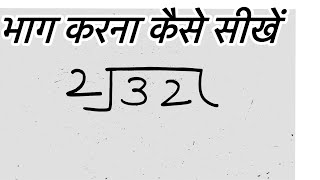 भाग करना कैसे सीखें
2)32(